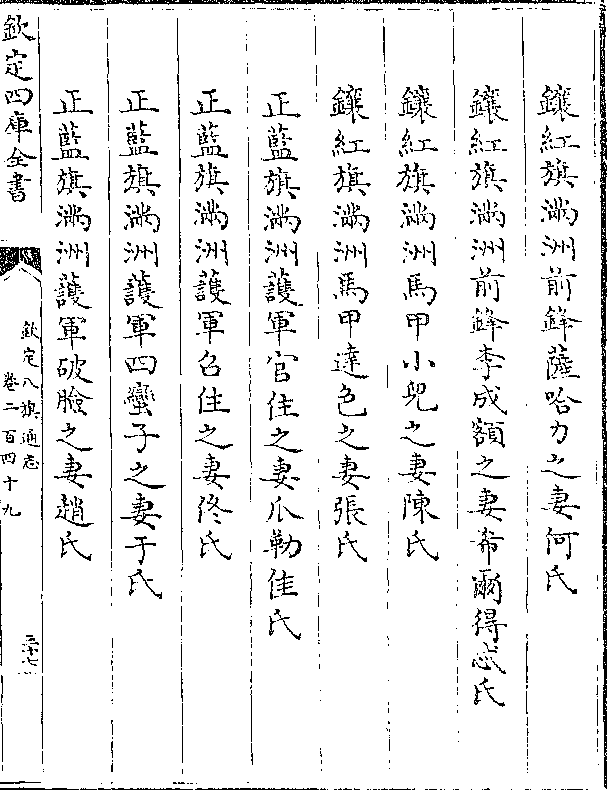 鑲紅旗滿洲前鋒薩哈力之妻何氏
鑲紅旗滿洲前鋒李成額之妻希爾得忒氏
鑲紅旗滿洲馬甲小兒之妻陳氏
鑲紅旗滿洲馬甲達色之妻張氏
正藍旗滿洲護軍官住之妻瓜勒佳氏
正藍旗滿洲護軍召住之妻佟氏
正藍旗滿洲護軍四蠻子之妻于氏
正藍旗滿洲護軍破臉之妻趙氏
欽定四庫全書
欽定八旗通志
卷二百四十九
三十七